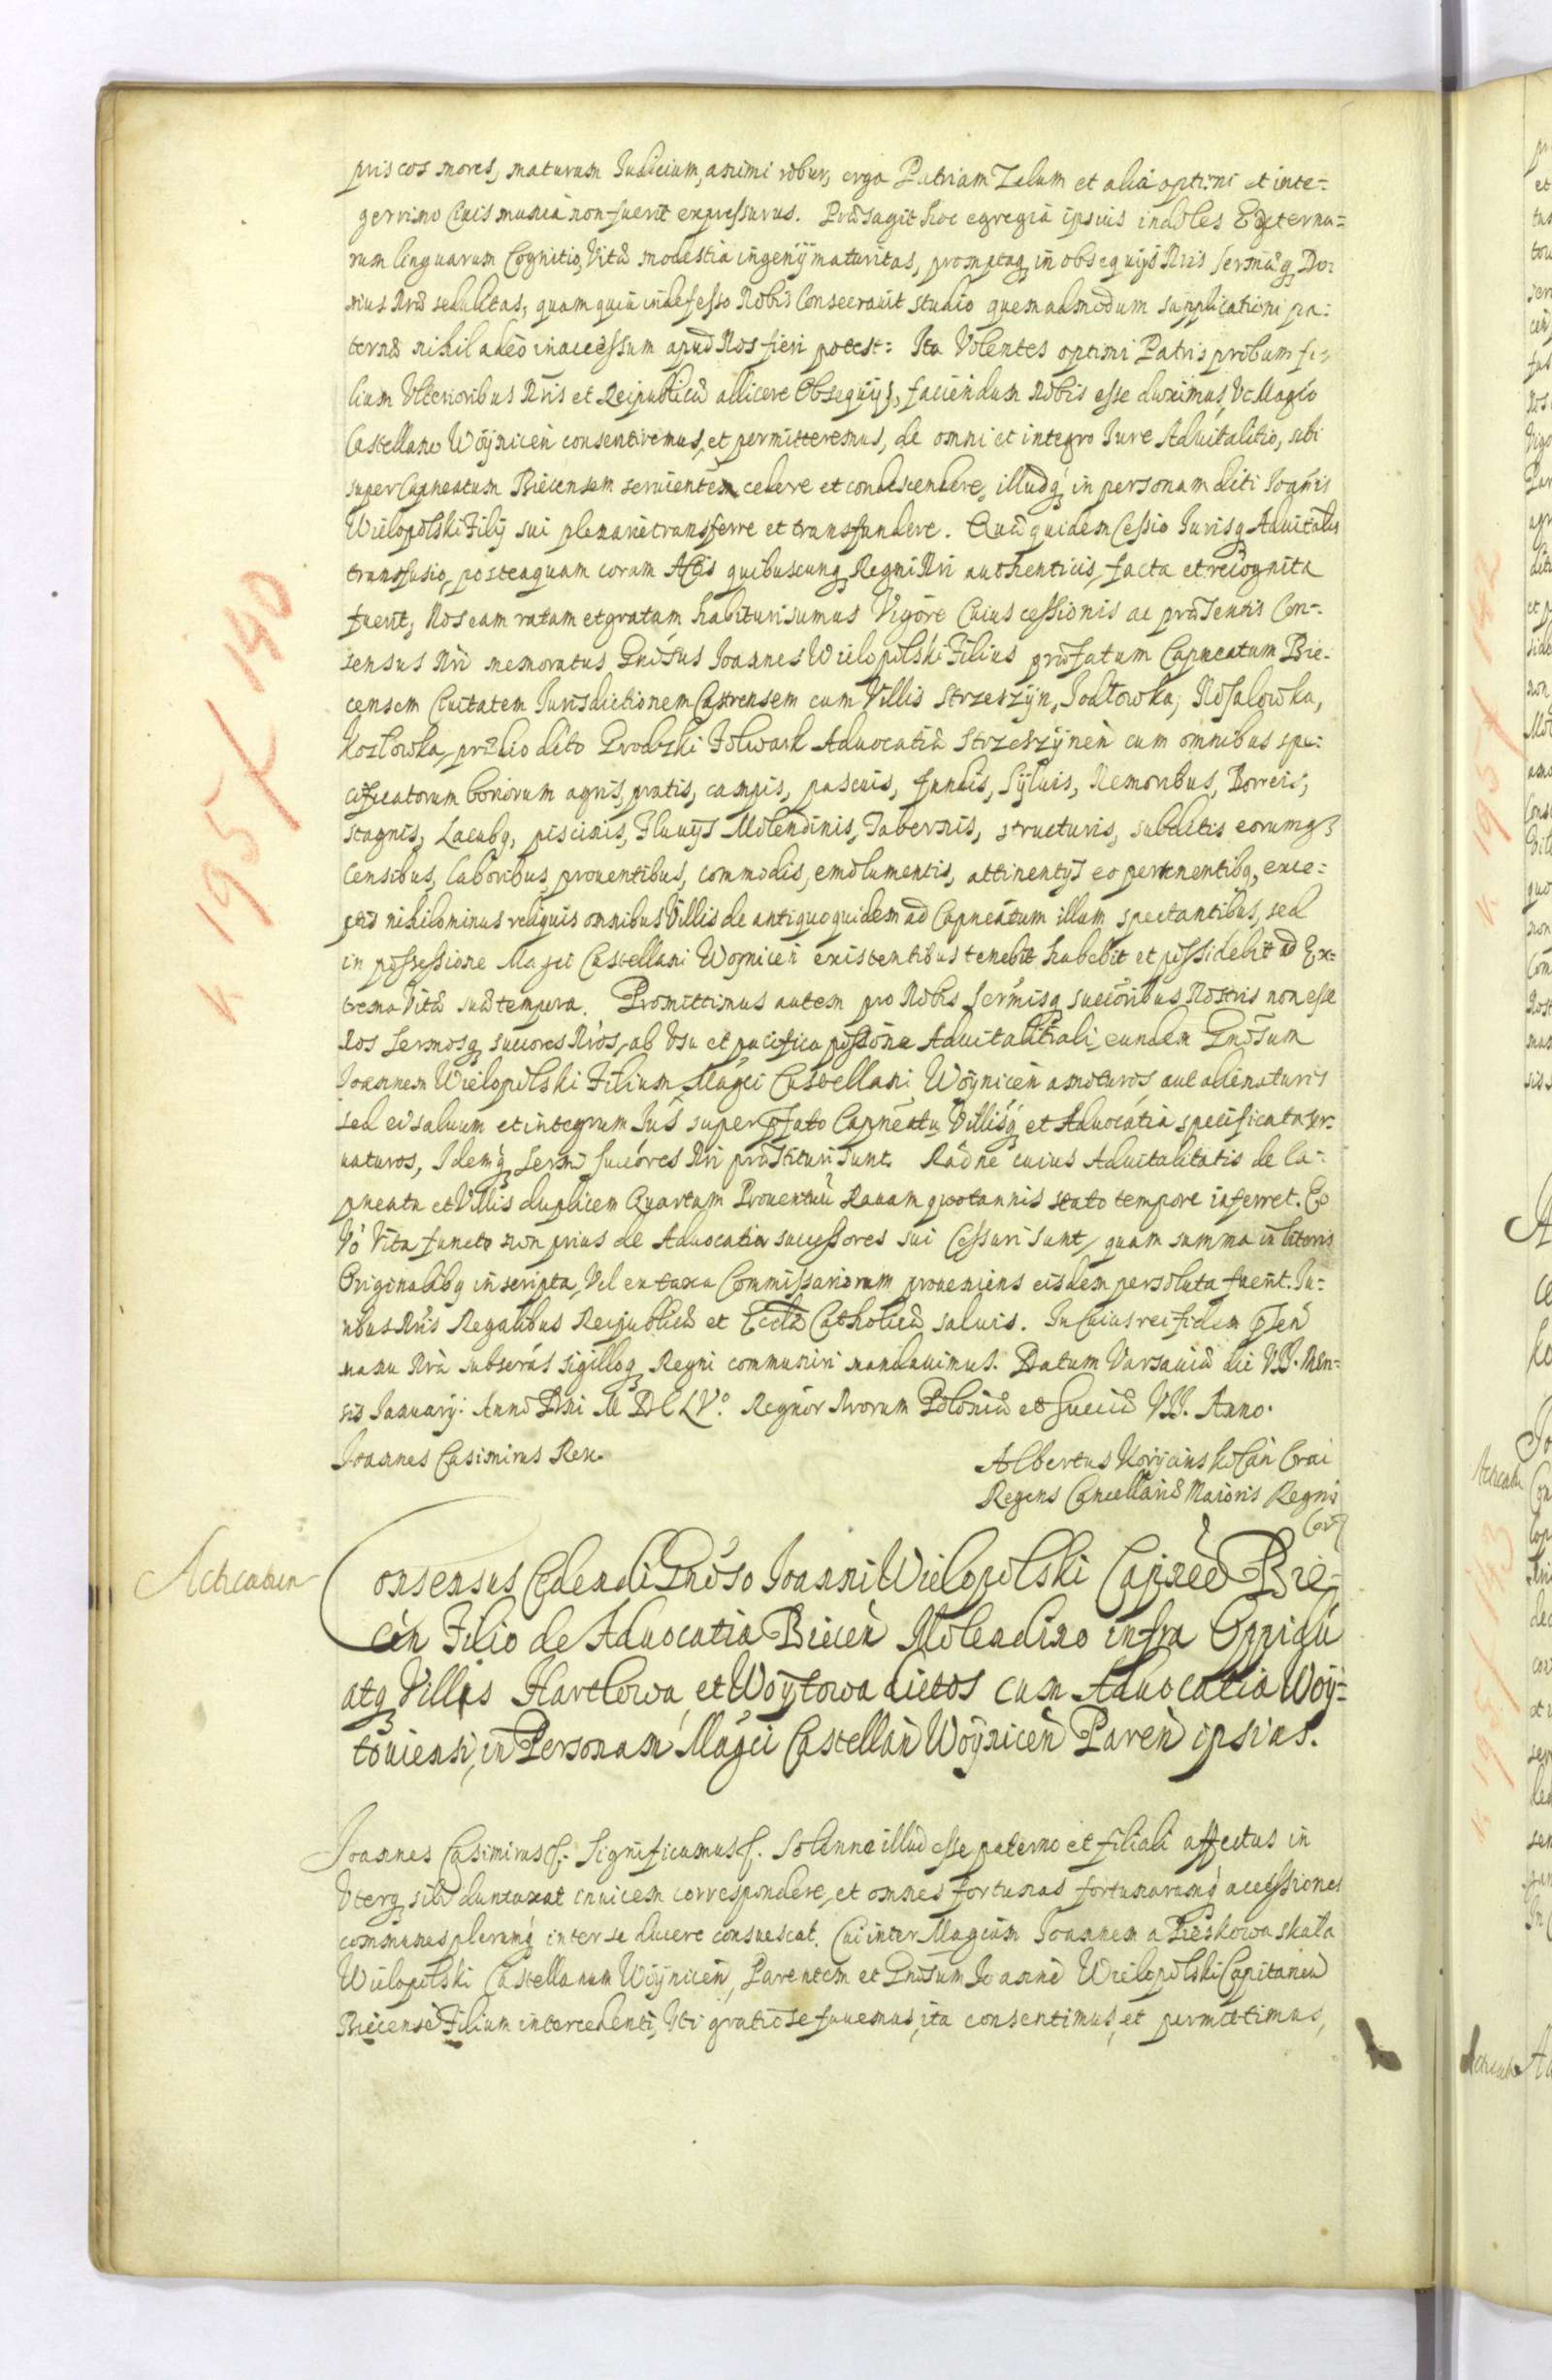 priscos mores, maturum Iudicium, animi robur, erga Patriam Zelum et alia optimi et inte-
gerrimo Ciuis munia non fuerit expressurus. Præsagit hoc egregia ipsius indoles Externa-
rum linguarum Cognitio, Vitæ modestia ingenij maturitas, promptaq in obsequijs Nris Sermæq Do-
mus Nræ sedulitas, quam quia indefesso Nobis Consecrauit studio quemadmodum supplicationi pa-
ternæ nihil adeo inaccessum apud Nos fieri potest: Ita Volentes optimi Patris probum fi-
lium Vlterioribus Nris et Reipublicæ allicere Obsequijs, faciendum Nobis esse duximus, Vt Magco
Castellano Woynicen consentiremus, et permitteremus, de omni et integro Iure Aduitalitio, sibi
super Capneatum Biecensem seruientem cedere et condescendere, illudq in personam dicti Joannis
Wielopolski Filij sui plenarie transferre et transfundere. Quæ quidem Cessio Jurisq Aduitalis
transfusio, posteaquam coram Actis quibuscunq Regni Nri authenticis, facta et recognita
fuerit, Nos eam ratam et gratam habituri sumus Vigore Cuius cessionis ac præsentis Con-
sensus Nri memoratus Gnosus Joannes Wielopolski Filius præfatum Capneatum Bie-
censem Ciuitatem Jurisdictionem Castrensem cum Villis Strzeszyn, Jodłowka, Rosałowka,
Kozłowka, prædio dicto Grodzki Folwark Aduocatia Strzeszynen cum omnibus spe-
cificatorum bonorum agris, pratis, campis, pascuis, fundis, Syluis, Nemoribus, Borreis,
stagnis, Lacubq, piscinis, Fluuijs Molendinis, Tabernis, structuris, subditis eorumq
Censibus, laboribus prouentibus, commodis, emolumentis, attinentijs eo pertinentibq, exce-
ptis nihilominus reliquis omnibus Villis de antiquo quidem ad Capneatum illum spectantibus, sed
in possessione Magci Castellani Woynicen existentibus tenebit habebit et possidebit ad Ex-
trema Vitæ suæ tempora. Promittimus autem pro Nobis Sermisq succoribus Nostris non esse
Nos Sermosq succores Nros, ab Vsu et pacifica possone Aduitalitiali, eundem Gnosum
Joannem Wielopolski Filium Magci Castellani Woynicen amoturos, aut alienaturos
sed ei saluum et integrum Jus super pfato Capneatu, Villisq et Aduocatia specificata ser-
uaturos, Idemq Sermi Succores Nri præstituri sunt. Raone cuius Aduitalitatis de Ca-
pneatu et Villis duplicem Quartam Prouentuu Rauam quotannis stato tempore inferret. Eo
Vo Vita functo non prius de Aduocatia successores sui Cessuri sunt, quam summa in literis
Originalibq inscripta, Vel ex taxa Commissariorum proueniens eisdem persoluta fuerit. Ju-
ribus Nris Regalibus Reipublicæ et Ecclæ Catholicæ saluis. In Cuius rei fidem psen
manu Nra subscras sigilloq Regni communiri mandauimus. Datum Varsauiæ die VII. Men-
sis Januarij. Anno Dni M DC LVº. Regnor Nrorum Poloniæ et Sueciæ VII. Anno.
Joannes Casimirus Rex.
Albertus Korycius Crai
Regens Cancellariæ Maioris Regni
Acticatum
Consensus Cedendi Gnoso Joanni Wielopolski Capneo Bie-
cen Filio de Aduocatia Biecen Molendino infra Oppidu
atq Villis Hartlowa, et Woytowa dictos cum Aduocatia Woy-
touiensi, in Personam Magci Castellan Woynicen Paren ipsius.
Joannes Casimirus Significamus Solenne illud esse paterno et filiali affectus in
Vterq sibi duntaxat inuicem correspondere, et omnes fortunas fortunarumq accessiones
communes plerumq inter se ducere consuescat. Cui inter Magcum Joannem a Pieskowaskała
Wielopolski Castellanum Woynicen, Parentem et Gnosum Joanne Wielopolski Capitaneu
Biecense Filium intercedenti, Vti gratiose fauemus, ita consentimus, et permittimus,
k 195/140